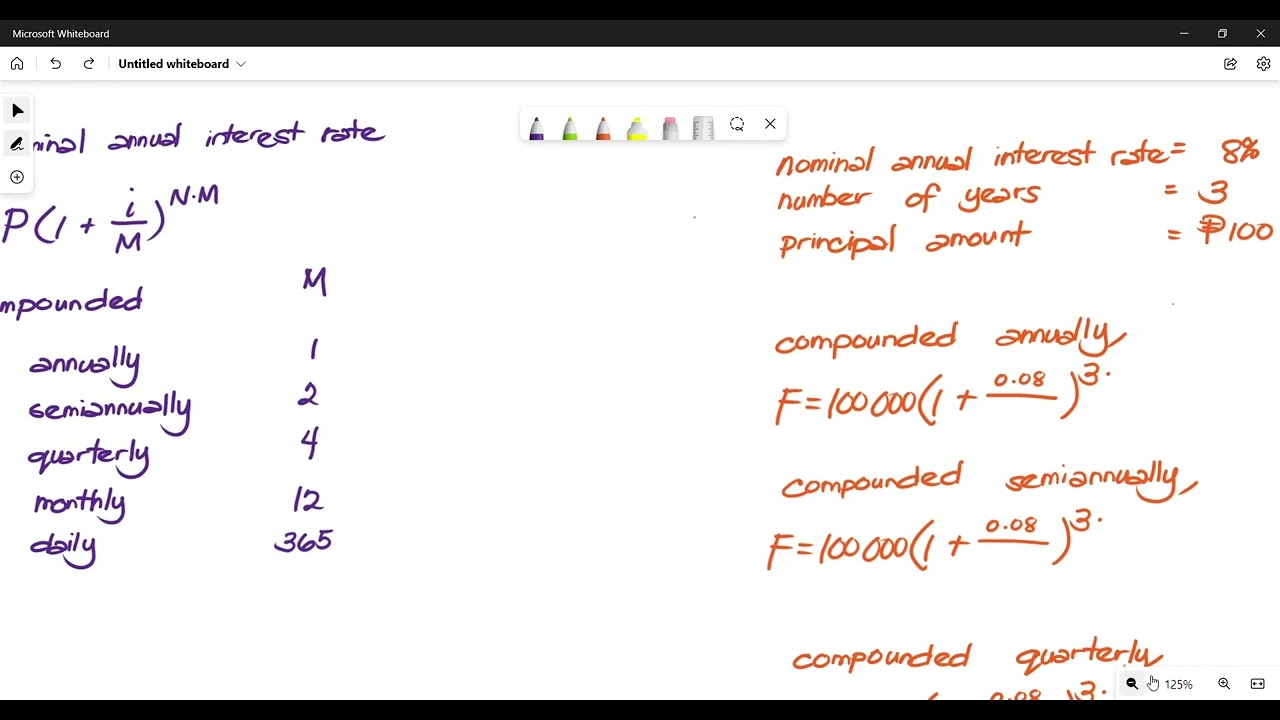 Microsoft Whiteboard
Untitled whiteboard
minal annual interest rate
P(1 + i/M)^N·M
mpounded M
annually 1
semiannually 2
quarterly 4
monthly 12
daily 365
nominal annual interest rate = 8%
number of years = 3
principal amount = ₱100
compounded annually,
F = 100 000(1 + 0.08/ )^3·
compounded semiannually,
F = 100 000(1 + 0.08/ )^3·
compounded quarterly
0.08 )^3·
125%